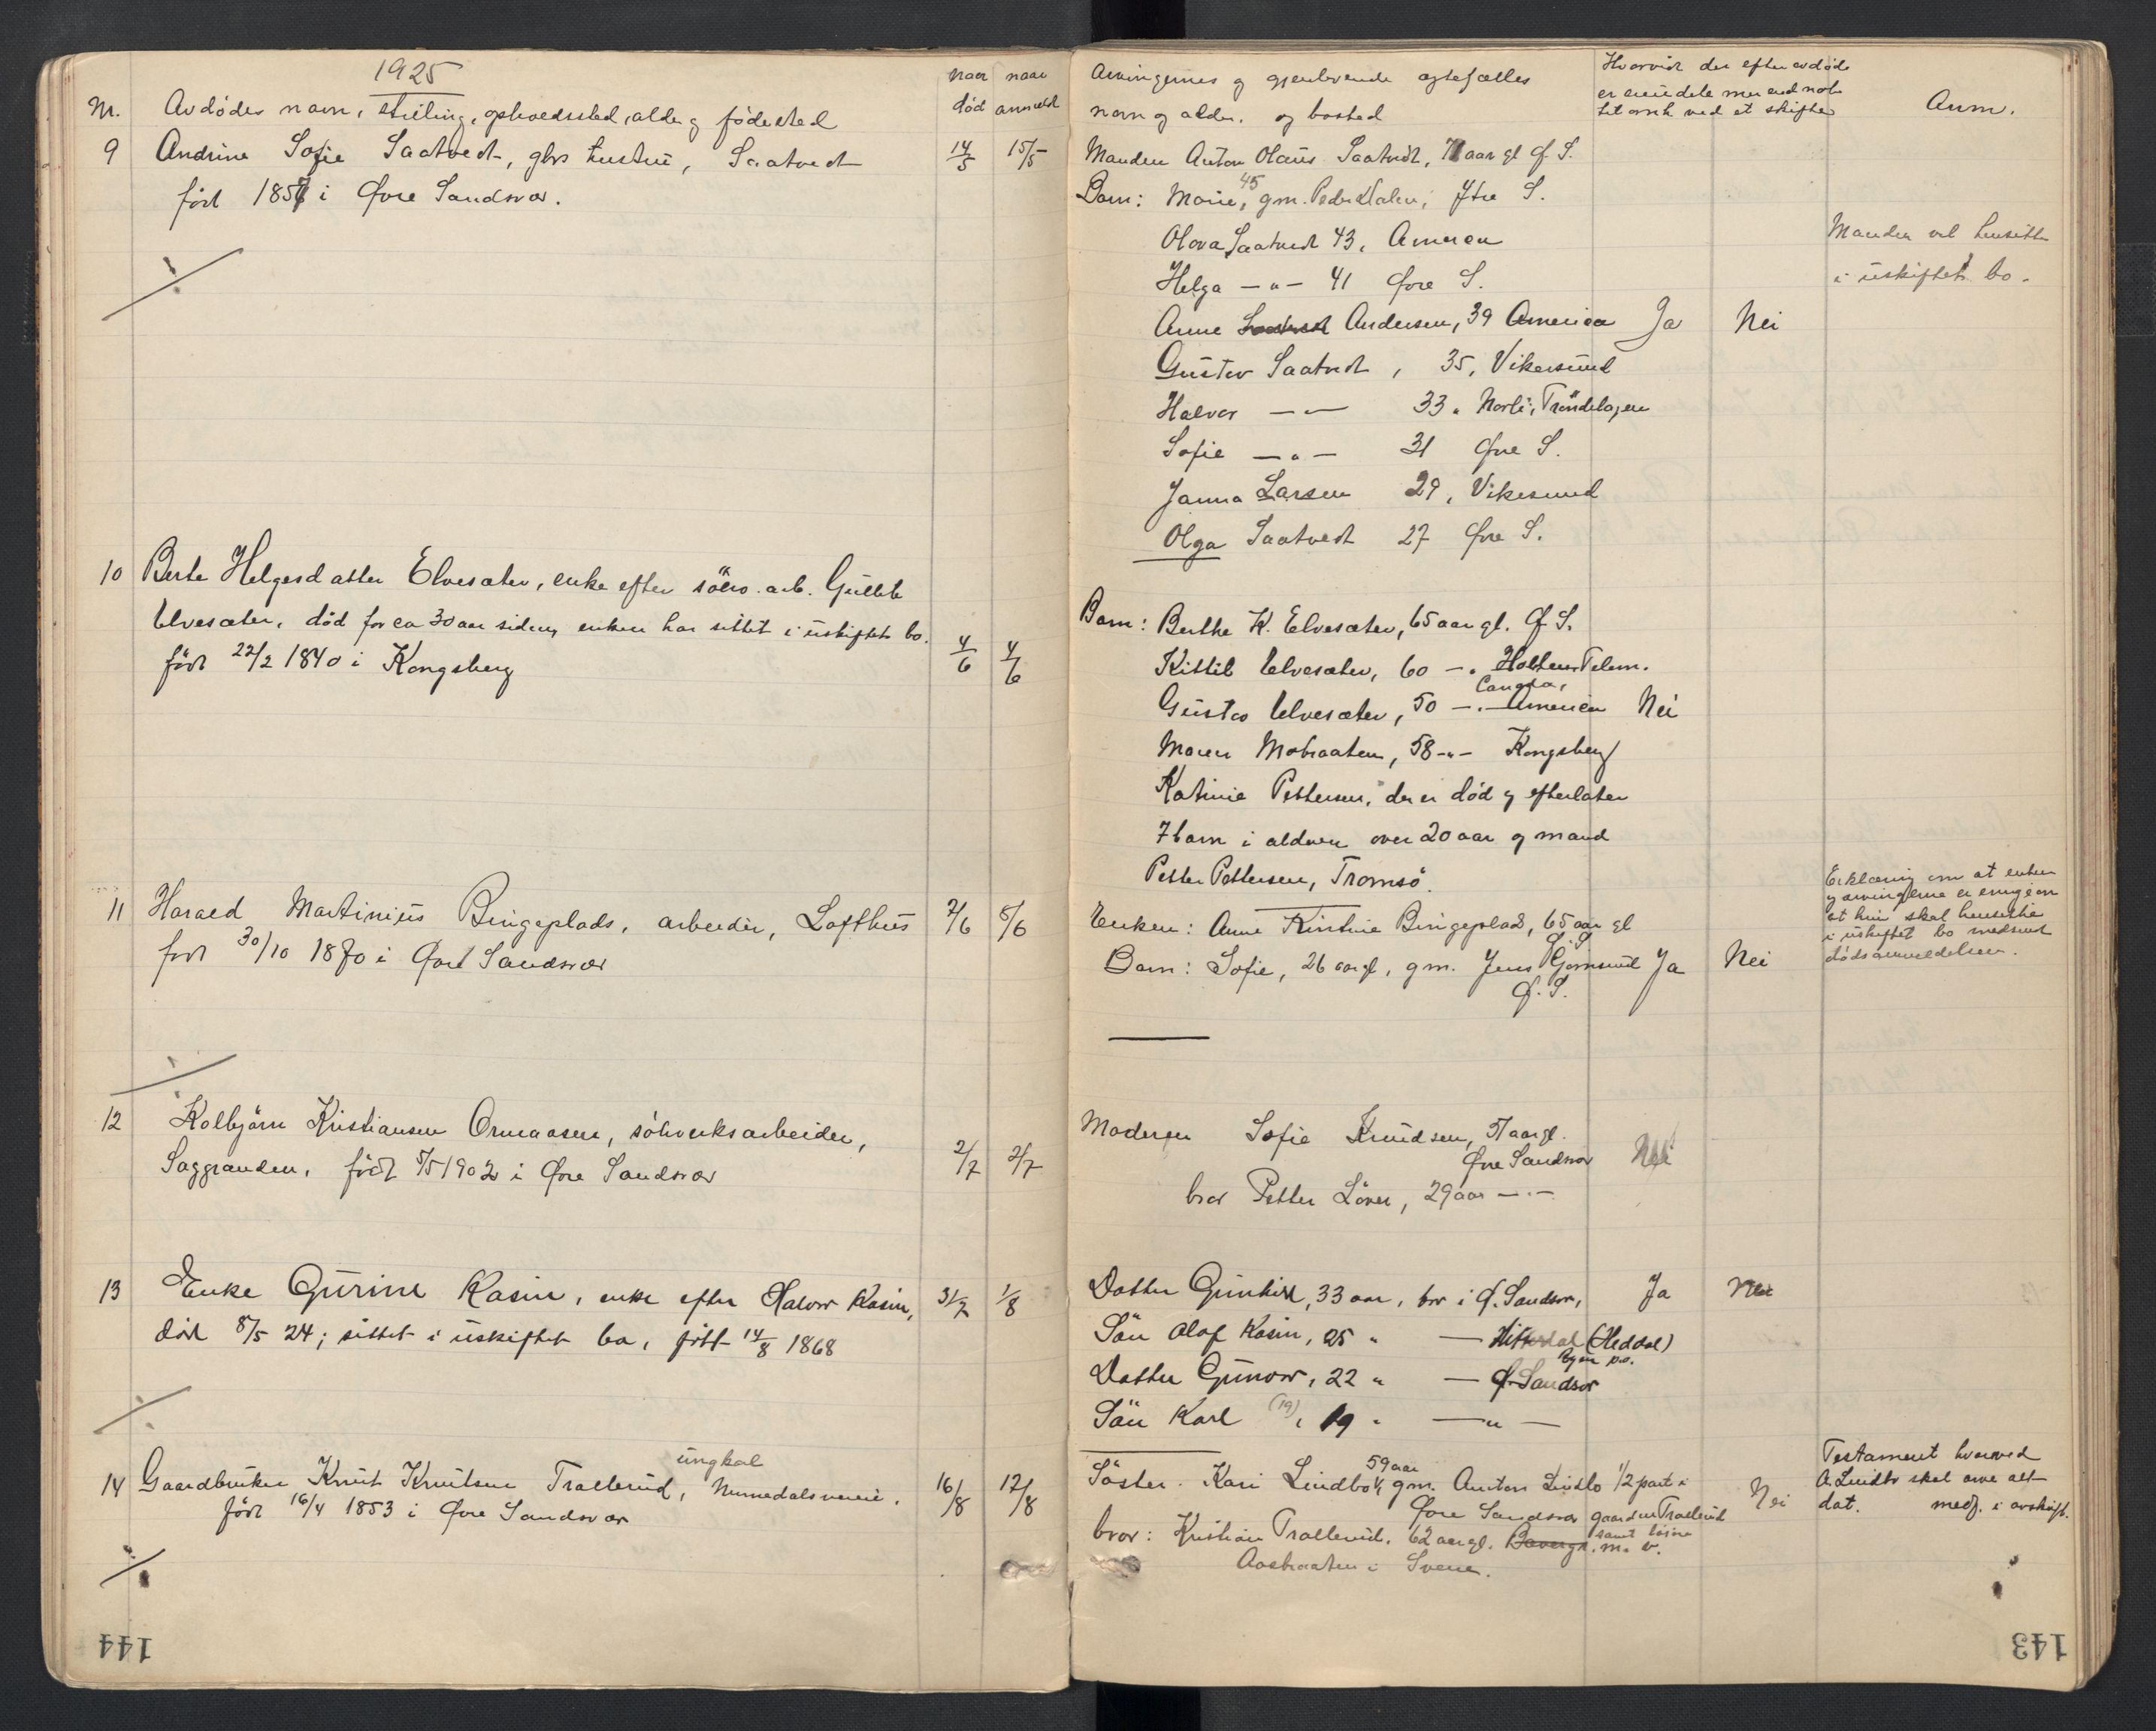 1925
Nr. Avdødes navn, stilling, opholdssted, alder og fødested
naar død
naar anmeldt
9 Andrine Sofie Saatvedt, gbrs hustru, Saatvedt 14/5 15/5
født 1857 i Øvre Sandsvær.
10 Berte Helgesdatter Elvesæter, enke efter sølvv. arb. Gullik
Elvesæter, død for ca 30 aar siden, enken har sittet i uskiftet bo. 4/6 4/6
født 22/2 1840 i Kongsberg
11 Harald Martinius Bingeplads, arbeider, Lofthus 2/6 5/6
født 30/10 1870 i Øvre Sandsvær
12 Kolbjørn Kristiansen Ormaasen, sølvverksarbeider,
Saggranden, født 5/5 1902 i Øvre Sandsvær 2/7 2/7
13 Enke Gurine Kasin, enke efter Halvor Kasin, 31/7 1/8
død 8/5 24; sittet i uskiftet bo, født 14/8 1868
ungkal
14 Gaardbruker Knut Knutsen Trallerud, Numedalsveien. 16/8 17/8
født 16/4 1853 i Øvre Sandsvær
144
Arvingernes og gjenlevende ægtefælles
navn og alder. og bosted
Hvorvidt der efter avdøde
er
ved et skifte
Anm.
Manden Anton Olaus Saatvedt, 71 aar gl Ø. S.
Barn: Marie, 45 gm. Peder Dalen, Ytre S.
Olava Saatvedt 43, Amerca
Helga —"— 41 Øvre S.
Anne Saatvedt Andersen, 39 America Ja Nei
Gustav Saatvedt, 35, Vikersund
Halvor —"— 33, Nordli, Trøndelagen
Sofie —"— 31 Øvre S.
Janna Larsen 29, Vikesund
Olga Saatvedt 27 Øvre S.
Manden vil hensitte
i uskiftet bo.
Barn: Berthe K. Elvesæter, 65 aar gl. Ø. S.
Kittil Elvesæter, 60 —"— Holten Telem.
Canada,
Gustav Elvesæter, 50 —"— America Nei
Maren Mobraaten, 58 —"— Kongsberg
Katinie Pettersen, der er død og efterlater
7 barn i alderen over 20 aar og mand
Petter Pettersen, Tromsø.
Enken: Anne Kirstine Bingeplads, 65 aar gl
Ø. S.
Barn: Sofie, 26 aar gl, gm. Jens Gomsrud Ja Nei
Ø. S.
Erklæring om at enken
og arvingerne er enige om
at hun skal hensitte
i uskiftet bo medsendt
dødsanmeldelsen.
Moderen Sofie Knudsen, 57 aar gl.
Øvre Sandsvær Nei
bror Petter Løver, 29 aar —"—
Datter Gunhild, 33 aar, bor i Ø. Sandsvær, Ja Nei
Søn Olaf Kasin, 25 " — Hitterdal (Heddal)
Datter Gunvor, 22 " — Ø. Sandsvær
Søn Karl (19), 19 " — " —
59 aar
Søster. Kari Lindbo, gm. Anton Lindbo 1/2 part i
Øvre Sandsvær gaarden Trallerud Nei
samt løsøre
bror: Kristian Trallerud, 62 aar gl. m. v.
Aasbraaten i Svene.
Testament hvorved
A. Lindbo skal arve alt
dat. medf. i avskrift.
143